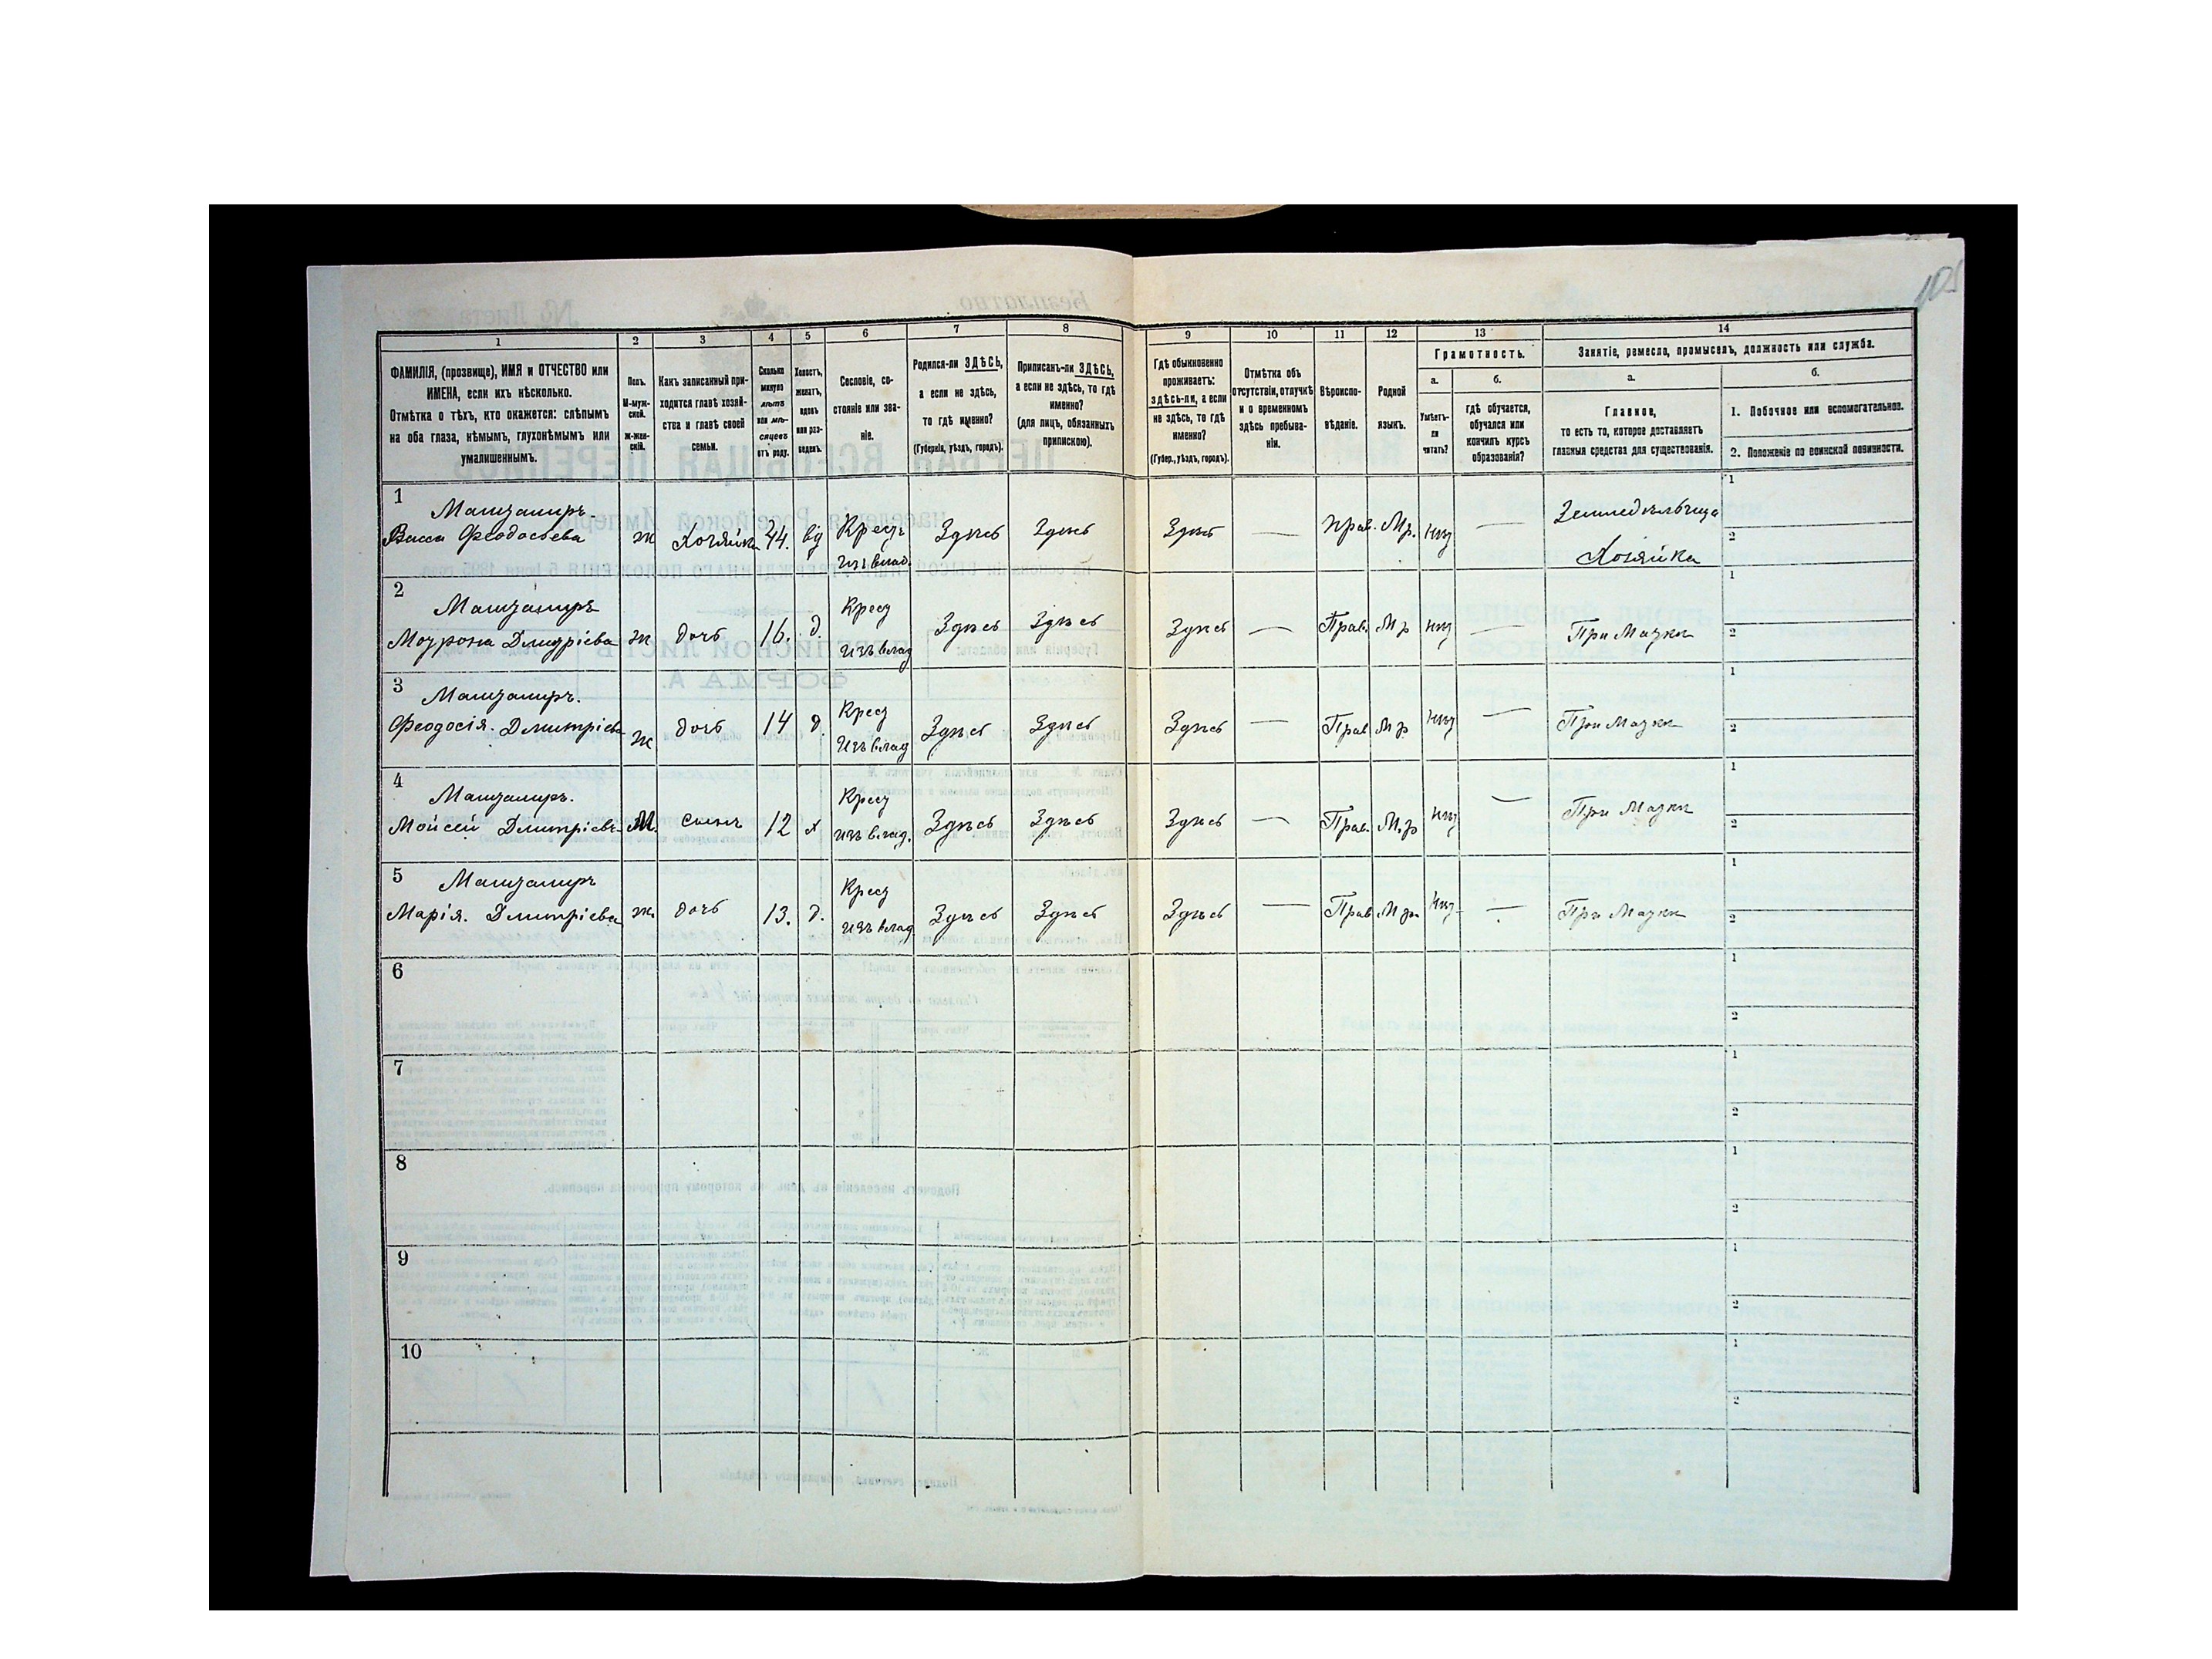 105
1 2 3 4 5 6 7 8 9 10 11 12 13 14
ФАМИЛІЯ, (прозвище), ИМЯ и ОТЧЕСТВО или
ИМЕНА, если ихъ нѣсколько.
Отмѣтка о тѣхъ, кто окажется: слѣпымъ
на оба глаза, нѣмымъ, глухонѣмымъ или
умалишеннымъ.
Полъ.
М-муж-
ской.
Ж-жен-
скій.
Какъ записанный при-
ходится главѣ хозяй-
ства и главѣ своей
семьи.
Сколько
минуло
лѣтъ
или мѣ-
сяцевъ
отъ роду.
Холостъ,
женатъ,
вдовъ
или раз-
веденъ.
Сословіе, со-
стояніе или зва-
ніе.
Родился-ли ЗДѢСЬ,
а если не здѣсь,
то гдѣ именно?
(Губернія, уѣздъ, городъ).
Приписанъ-ли ЗДѢСЬ,
а если не здѣсь, то гдѣ
именно?
(для лицъ, обязанныхъ
припискою).
Гдѣ обыкновенно
проживаетъ:
здѣсь-ли, а если
не здѣсь, то гдѣ
именно?
(Губер., уѣздъ, городъ).
Отмѣтка объ
отсутствіи, отлучкѣ
и о временномъ
здѣсь пребыва-
ніи.
Вѣроиспо-
вѣданіе.
Родной
языкъ.
Грамотность.
а.
Умѣетъ-
ли
читать?
б.
гдѣ обучается,
обучался или
кончилъ курсъ
образованія?
Занятіе, ремесло, промыселъ, должность или служба.
а.
Главное,
то есть то, которое доставляетъ
главныя средства для существованія.
б.
1. Побочное или вспомогательное.
2. Положеніе по воинской повинности.
1
Васса Феодосьева ж Хозяйка 44. вд Крест изъ влад. Здѣсь Здѣсь Здѣсь — Прав. Мр. нѣт — Земледѣльица Хозяйка 1 2
2
Дмитріева ж дочь 16. д. Крест изъ влад Здѣсь Здѣсь Здѣсь — Прав. Мр нѣт — При Матки 1 2
3
Феодосія. Дмитріева ж дочь 14 д. Крест изъ влад Здѣсь Здѣсь Здѣсь — Прав Мр нѣт — При Матки 1 2
4
Мойсей Дмитріевъ М. сынъ 12 х Крест изъ влад. Здѣсь Здѣсь Здѣсь — Прав. Мр нѣт — При Матки 1 2
5
Марія. Дмитріева ж. дочь 13. д. Крест изъ влад. Здѣсь Здѣсь Здѣсь — Прав Мр. нѣт — При Матки 1 2
6 1 2
7 1 2
8 1 2
9 1 2
10 1 2